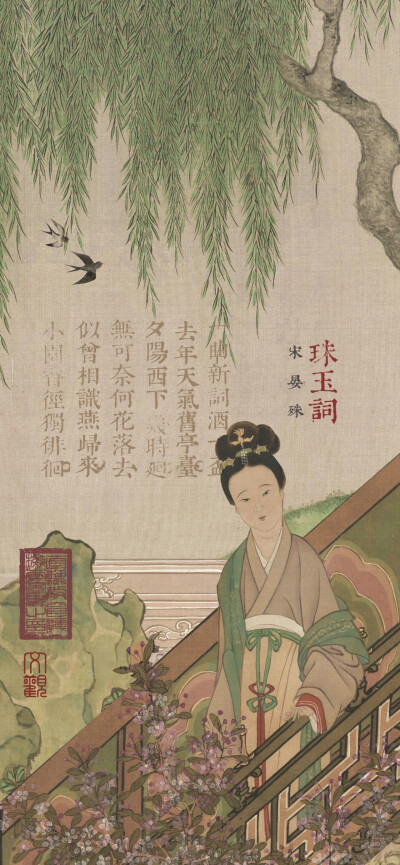 珠玉詞
宋 晏殊
一曲新詞酒一盃
去年天氣舊亭臺
夕陽西下幾時廻
無可奈何花落去
似曾相識燕歸來
小園香徑獨徘徊
文觀